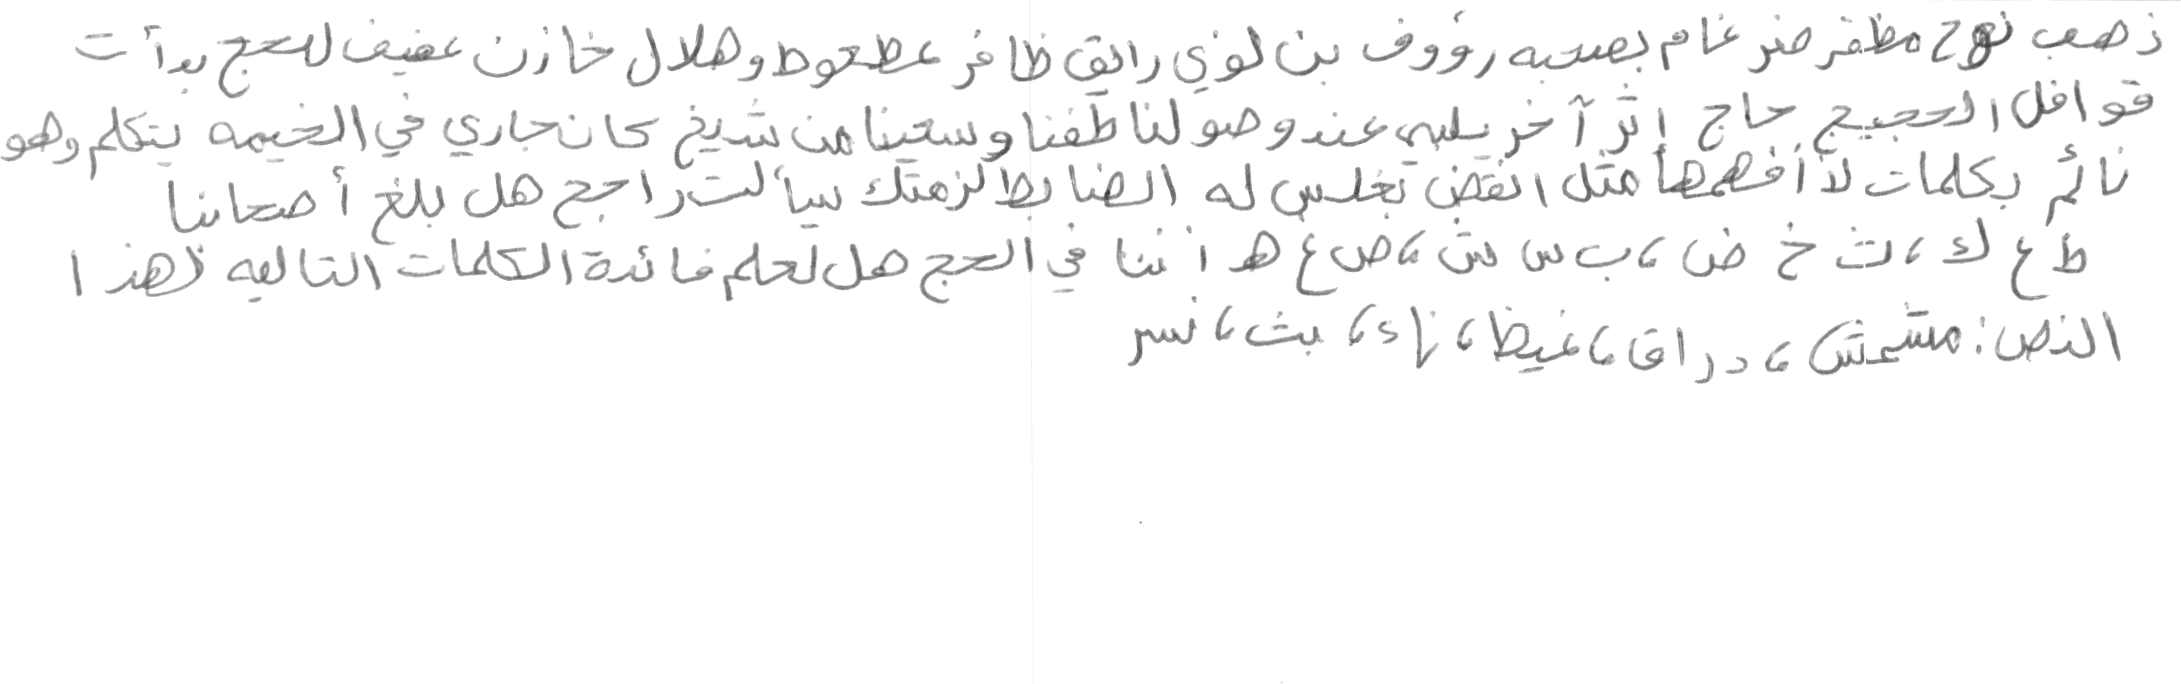 ذهب نوح مظفر ضرغام بصحبه رؤوف بن لؤي رايق ظافر عطعوط وهلال خازن عفيف للحج بدأت
قوافل الحجيج حاج إثر آخر يلبي عند وصولنا طفنا وسعينا من شيخ كان جاري في الخيمه يتكلم وهو
نائم بكلمات لا أفهمها مثل انقض تغلس له الضابط لزمتك سألت راجح هل بلغ أصحابنا
ط ع ك ، ث خ ض ، ب س ش ، ص غ هـ أننا في الحج هل لعلم فائدة الكلمات التاليه لهذا
النص : مشمش ، دراق ، غيظ ، ناء ، بث ، نسر